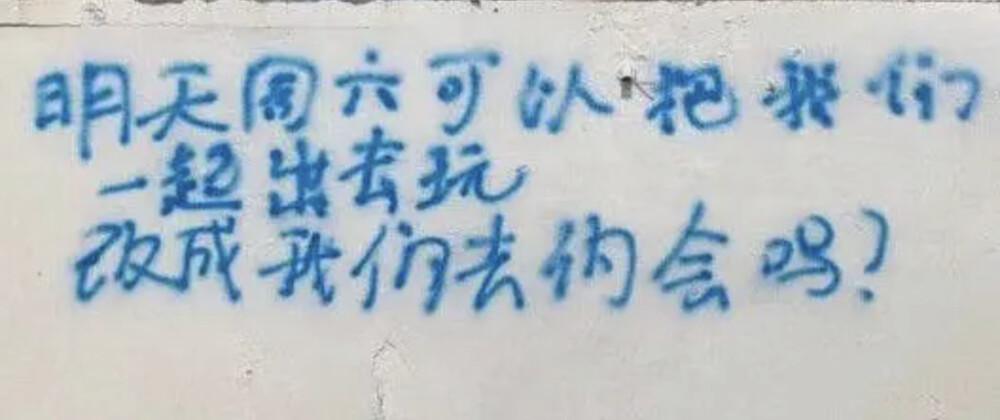 明天周六可以把我们
一起出去玩
改成我们去约会吗?